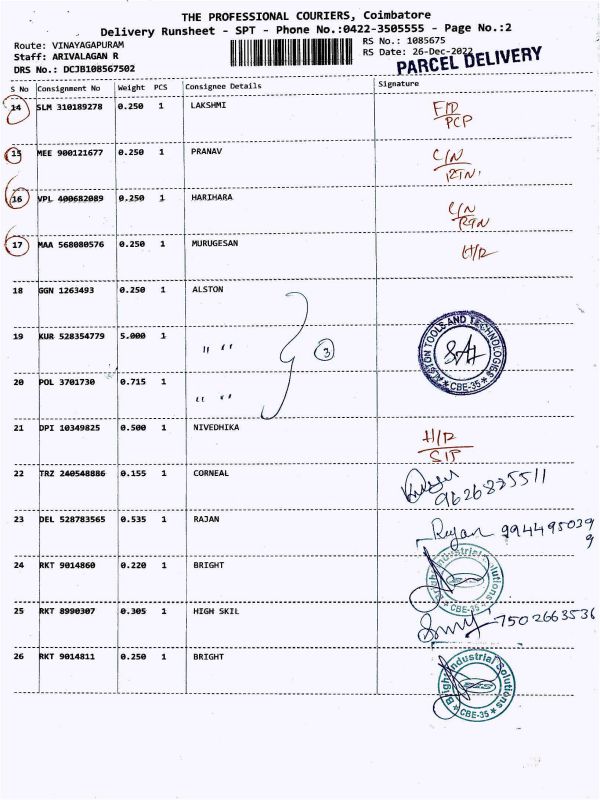 THE PROFESSIONAL COURIERS, Coimbatore
Delivery Runsheet - SPT - Phone No.:0422-3505555 - Page No.:2
Route: VINAYAGAPURAM
RS No.: 1085675
Staff: ARIVALAGAN R
RS Date: 26-Dec-2022
DRS No.: DCJB108567502
PARCEL DELIVERY
S No Consignment No Weight PCS Consignee Details Signature
14 SLM 310189278 0.250 1 LAKSHMI
PCP
15 MEE 900121677 0.250 1 PRANAV C/N
RTN
16 VPL 400682089 0.250 1 HARIHARA C/N
RTN
17 MAA 568080576 0.250 1 MURUGESAN
18 GGN 1263493 0.250 1 ALSTON
19 KUR 528354779 5.000 1 " "
3
ALSTON TOOLS AND TECHNOLOGIES
* CBE-35 *
20 POL 3701730 0.715 1 " "
21 DPI 10349825 0.500 1 NIVEDHIKA
22 TRZ 240548886 0.155 1 CORNEAL
9626825511
23 DEL 528783565 0.535 1 RAJAN Rajan 9944950399
24 RKT 9014860 0.220 1 BRIGHT
Bright Industrial Solutions
* CBE-35 *
25 RKT 8990307 0.305 1 HIGH SKIL 7502663536
26 RKT 9014811 0.250 1 BRIGHT
Bright Industrial Solutions
* CBE-35 *